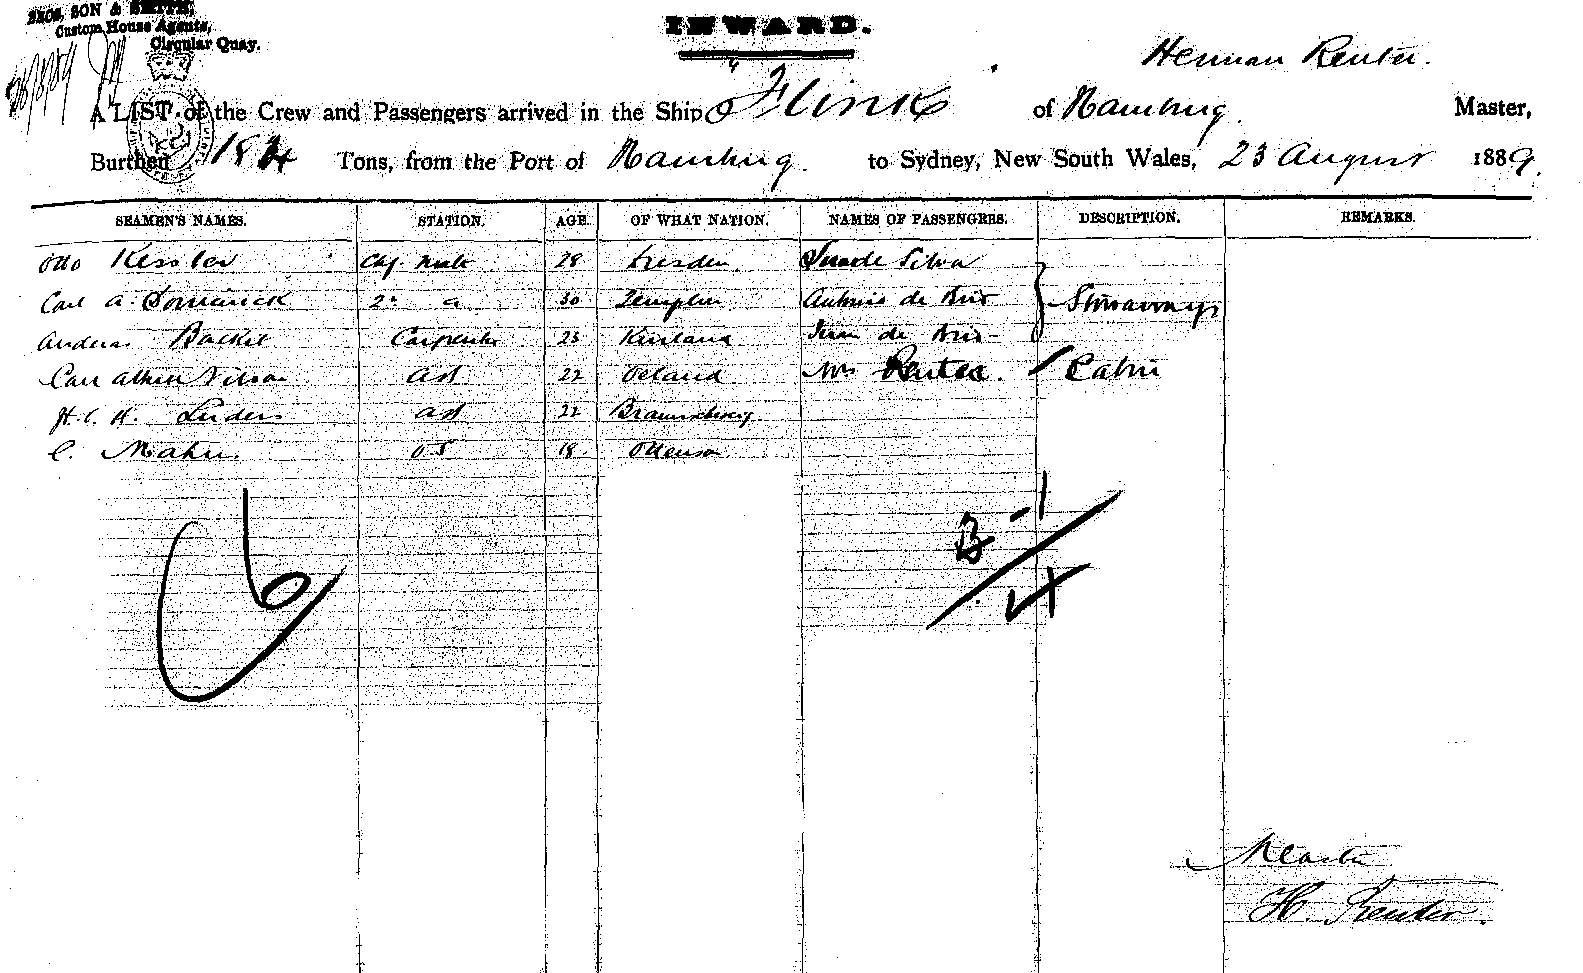 SON & SMITH,
Custom House Agents,
Circular Quay.
INWARD.
Herman Reuter.
A LIST of the Crew and Passengers arrived in the Ship "Flink" of Hamburg. Master,
Burthen 184 Tons, from the Port of Hamburg. to Sydney, New South Wales, 23 August 1889.
SEAMEN'S NAMES. STATION. AGE. OF WHAT NATION. NAMES OF PASSENGERS. DESCRIPTION. REMARKS.
Otto Kessler Chf. Mate 28 Dresden. de Silva
Carl A. Dominick 2" " 30 Templin Antonio de Stowaways
Anders Backe Carpenter 23 de
Carl Albert Nilson AS 22 Oeland Mrs Reuter. Cabin
H. C. H. Lüders AS 22 Braunschweig
C. Mahn OS 18 Ottensen
6
3 - 1
4
Master
H. Reuter.